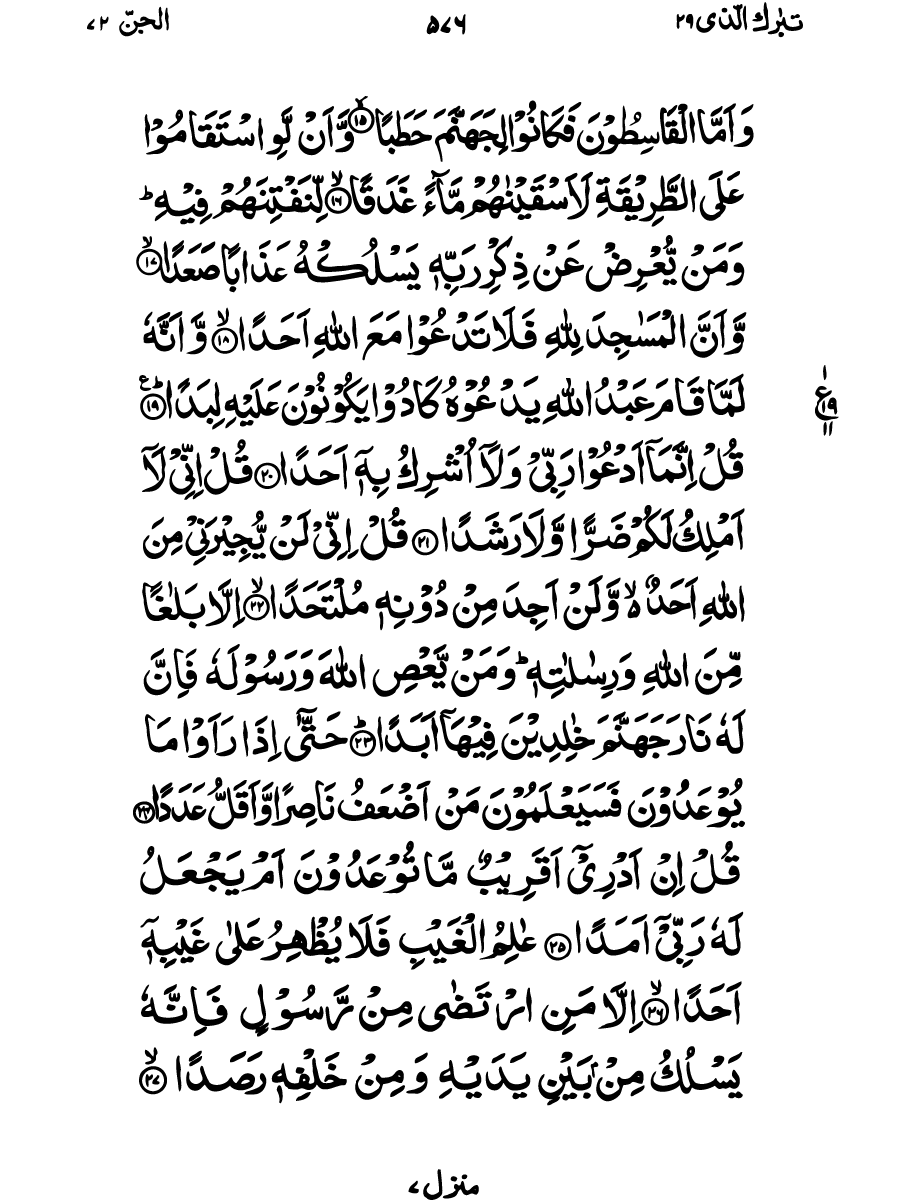 تبٰرك الّذی ۲۹
۵۷۶
الجنّ ۷۲
وَاَمَّا الْقَاسِطُوْنَ فَكَانُوْا لِجَهَنَّمَ حَطَبًا ۙ‏﴿۱۵﴾ وَّاَنْ لَّوِ اسْتَقَامُوْا
عَلَى الطَّرِيْقَةِ لَاَسْقَيْنٰهُمْ مَّآءً غَدَقًا ۙ‏﴿۱۶﴾ لِّنَفْتِنَهُمْ فِيْهِ ؕ
وَمَنْ يُّعْرِضْ عَنْ ذِكْرِ رَبِّهٖ يَسْلُكْهُ عَذَابًا صَعَدًا ۙ‏﴿۱۷﴾
وَّاَنَّ الْمَسٰجِدَ لِلّٰهِ فَلَا تَدْعُوْا مَعَ اللّٰهِ اَحَدًا ۙ‏﴿۱۸﴾ وَّاَنَّهٗ
لَمَّا قَامَ عَبْدُ اللّٰهِ يَدْعُوْهُ كَادُوْا يَكُوْنُوْنَ عَلَيْهِ لِبَدًا ؕ‏﴿۱۹﴾ ع
ع ۱۹ ۱۱
قُلْ اِنَّمَاۤ اَدْعُوْا رَبِّىْ وَلَاۤ اُشْرِكُ بِهٖۤ اَحَدًا ﴿۲۰﴾ قُلْ اِنِّىْ لَاۤ
اَمْلِكُ لَكُمْ ضَرًّا وَّلَا رَشَدًا ﴿۲۱﴾ قُلْ اِنِّىْ لَنْ يُّجِيْرَنِىْ مِنَ
اللّٰهِ اَحَدٌ ۙ وَّلَنْ اَجِدَ مِنْ دُوْنِهٖ مُلْتَحَدًا ۙ‏﴿۲۲﴾ اِلَّا بَلٰغًا
مِّنَ اللّٰهِ وَرِسٰلٰتِهٖ ؕ وَمَنْ يَّعْصِ اللّٰهَ وَرَسُوْلَهٗ فَاِنَّ
لَهٗ نَارَ جَهَنَّمَ خٰلِدِيْنَ فِيْهَاۤ اَبَدًا ؕ‏﴿۲۳﴾ حَتّٰٓى اِذَا رَاَوْا مَا
يُوْعَدُوْنَ فَسَيَعْلَمُوْنَ مَنْ اَضْعَفُ نَاصِرًا وَّاَقَلُّ عَدَدًا ﴿۲۴﴾
قُلْ اِنْ اَدْرِىْۤ اَقَرِيْبٌ مَّا تُوْعَدُوْنَ اَمْ يَجْعَلُ
لَهٗ رَبِّىْۤ اَمَدًا ﴿۲۵﴾ عٰلِمُ الْغَيْبِ فَلَا يُظْهِرُ عَلٰى غَيْبِهٖۤ
اَحَدًا ۙ‏﴿۲۶﴾ اِلَّا مَنِ ارْتَضٰى مِنْ رَّسُوْلٍ فَاِنَّهٗ
يَسْلُكُ مِنْۢ بَيْنِ يَدَيْهِ وَمِنْ خَلْفِهٖ رَصَدًا ۙ‏﴿۲۷﴾
منزل ۷